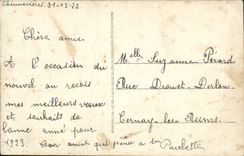 31-12-22
Chère amie
A l'occasion du
nouvel an reçois
mes meilleurs vœux
et souhaits de
bonne année pour
1923. Ton amie qui pense à toi
Paulette
Melle Suzanne Pérard
Rue Drouet Derlon
Cernay-les-Reims